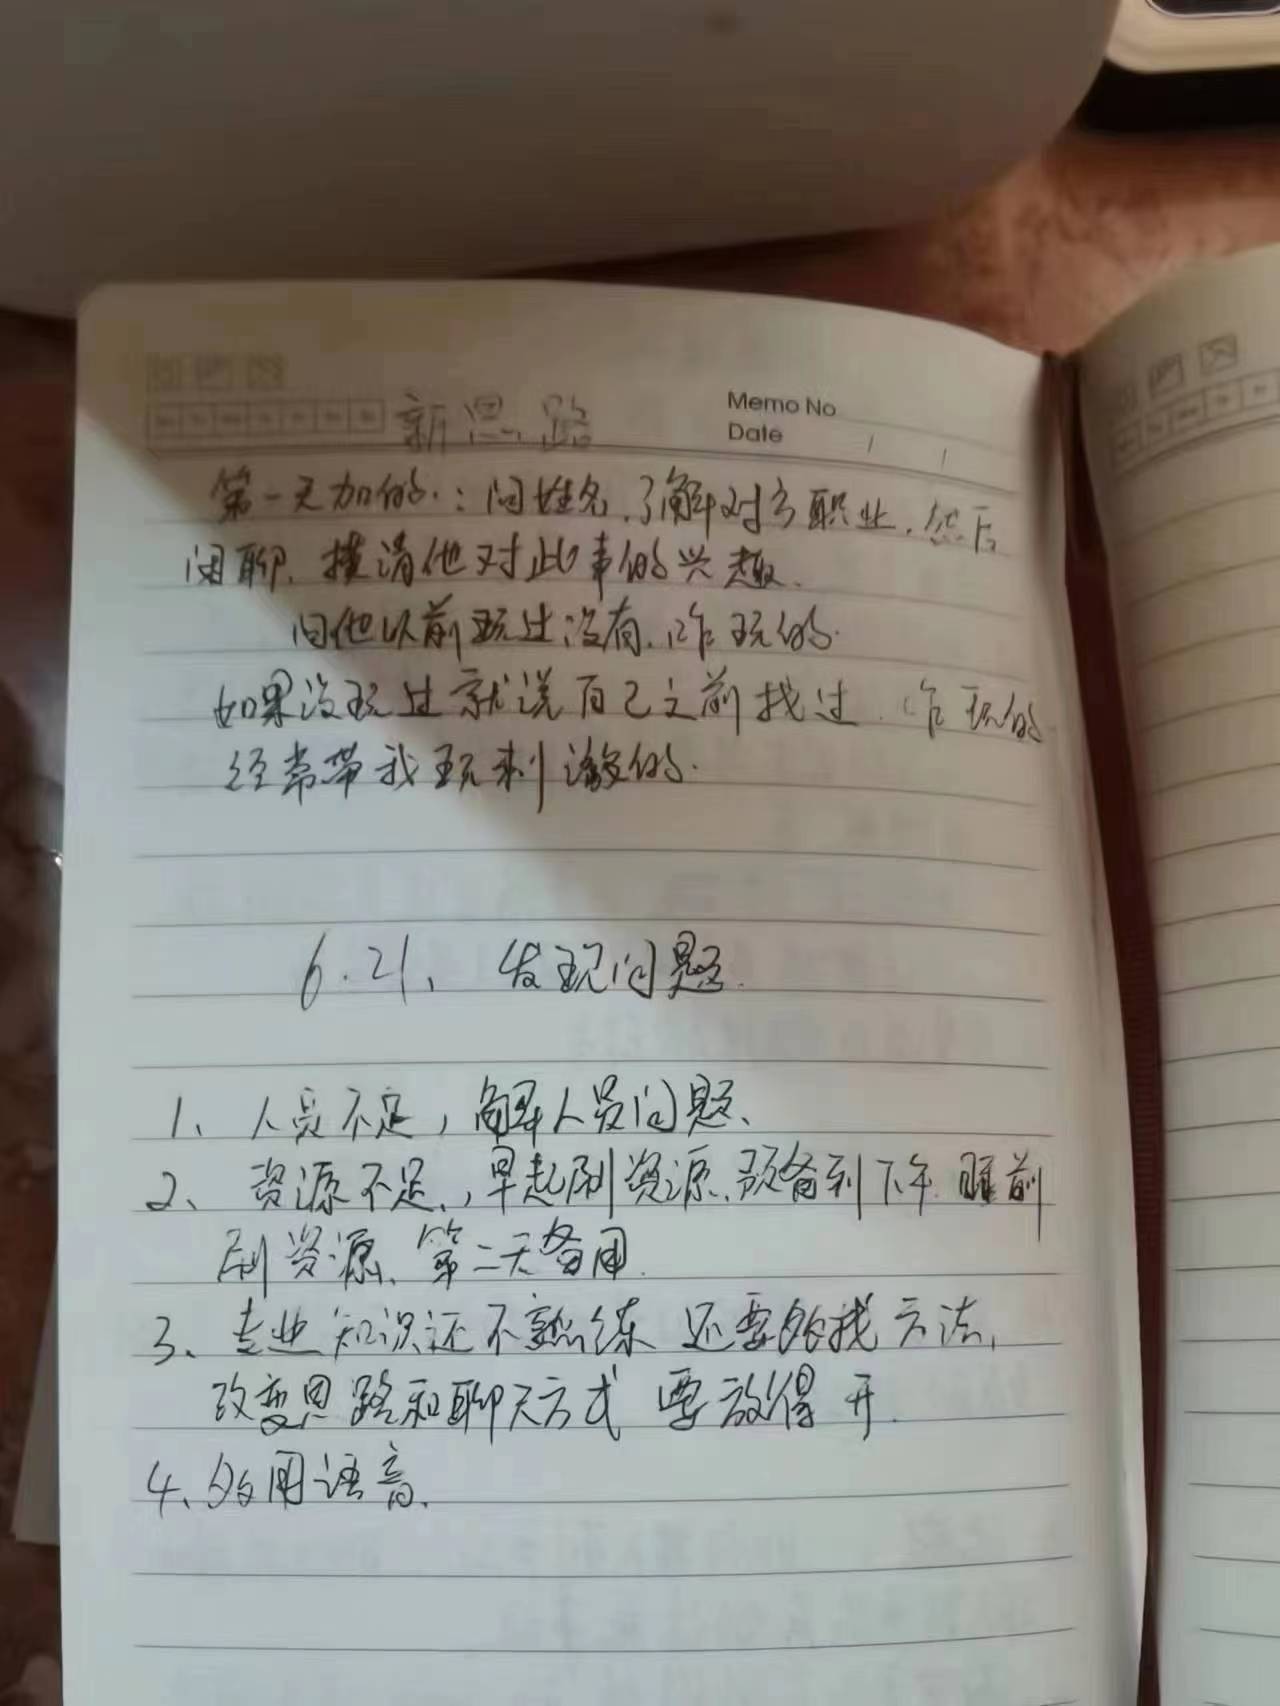 Memo No
新思路
Date / /
第一天加的：问姓名，了解对方职业，然后
闲聊，摸清他对此事的兴趣、
问他以前玩过没有，咋玩的.
如果没玩过就说自己之前找过，咋玩的
经常带我玩刺激的.
6.21、发现问题.
1、人员不足，解人员问题、
2、资源不足，早起刷资源、预备到下午，睡前
刷资源、第二天备用.
3、专业知识还不熟练 还要多找方法，
改变思路和聊天方式 要放得开.
4、多用语音.